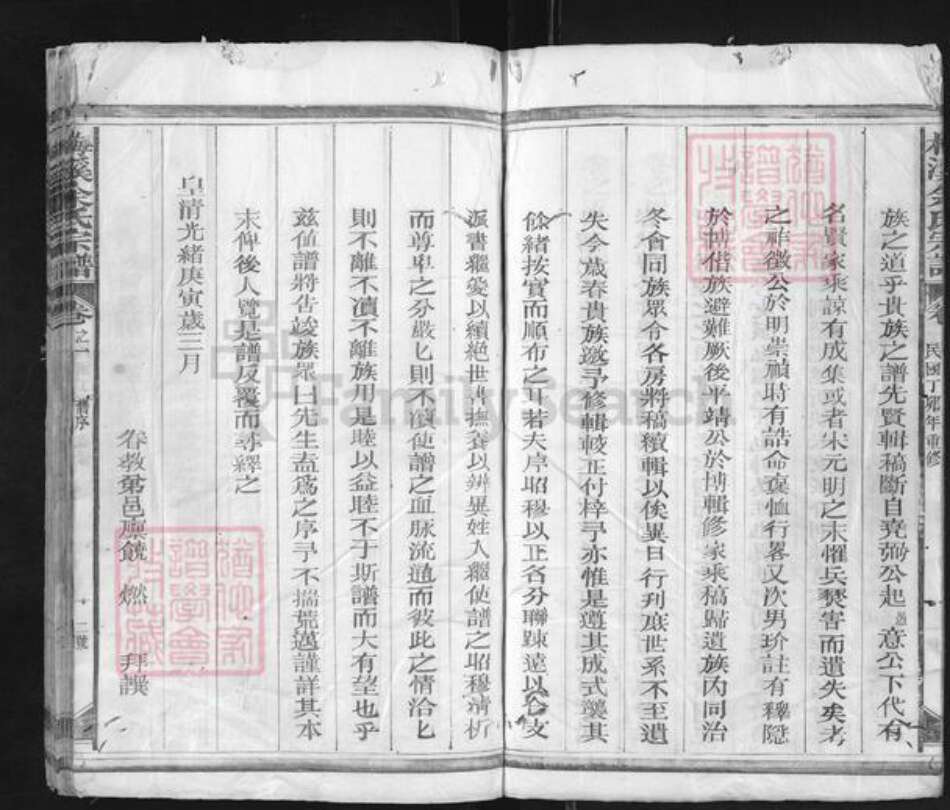 梅溪余氏宗譜
民國丁卯年重修
族之道乎貴族之譜先賢輯稿斷自堯弼公起意公下代有
名賢家乘諒有成集或者宋元明之末懼兵燹害而遺失矣考
之祥徵公於明崇禎時有誥命褒恤行畧又次男玠註有釋隱
於博偕族避難厥後平靖公於博輯修家乘稿歸遺族內同治
冬會同族眾令各房將稿續輯以俟異日行刋庶世系不至遺
失今歲春貴族邀予修輯較正付梓予亦惟是遵其成式纂其
餘緒按實而順布之耳若夫序昭穆以正名分聯踈遠以合支
派書繼愛以續絕世書撫養以辨異姓入繼使譜之昭穆清析
而尊卑之分嚴匕則不瀆使譜之血脉流通而彼此之情洽匕
則不離不瀆不離族用是睦以益睦不于斯譜而大有望也乎
兹值譜將告竣族眾曰先生盍爲之序予不揣荒邁謹詳其本
末俾後人覽是譜反覆而尋繹之
皇清光緒庚寅歲三月
眷教弟邑廩饒燃拜譔
梅溪余氏宗譜
卷之一
舊序
猶他家譜學會特藏
猶他家譜學會特藏
FamilySearch